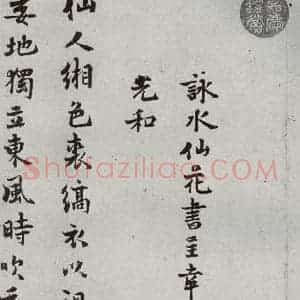 詠水仙花書呈幸
光和
仙人緗色裘縞衣以裼
委地獨立東風時吹香
Shufaziliao.COM